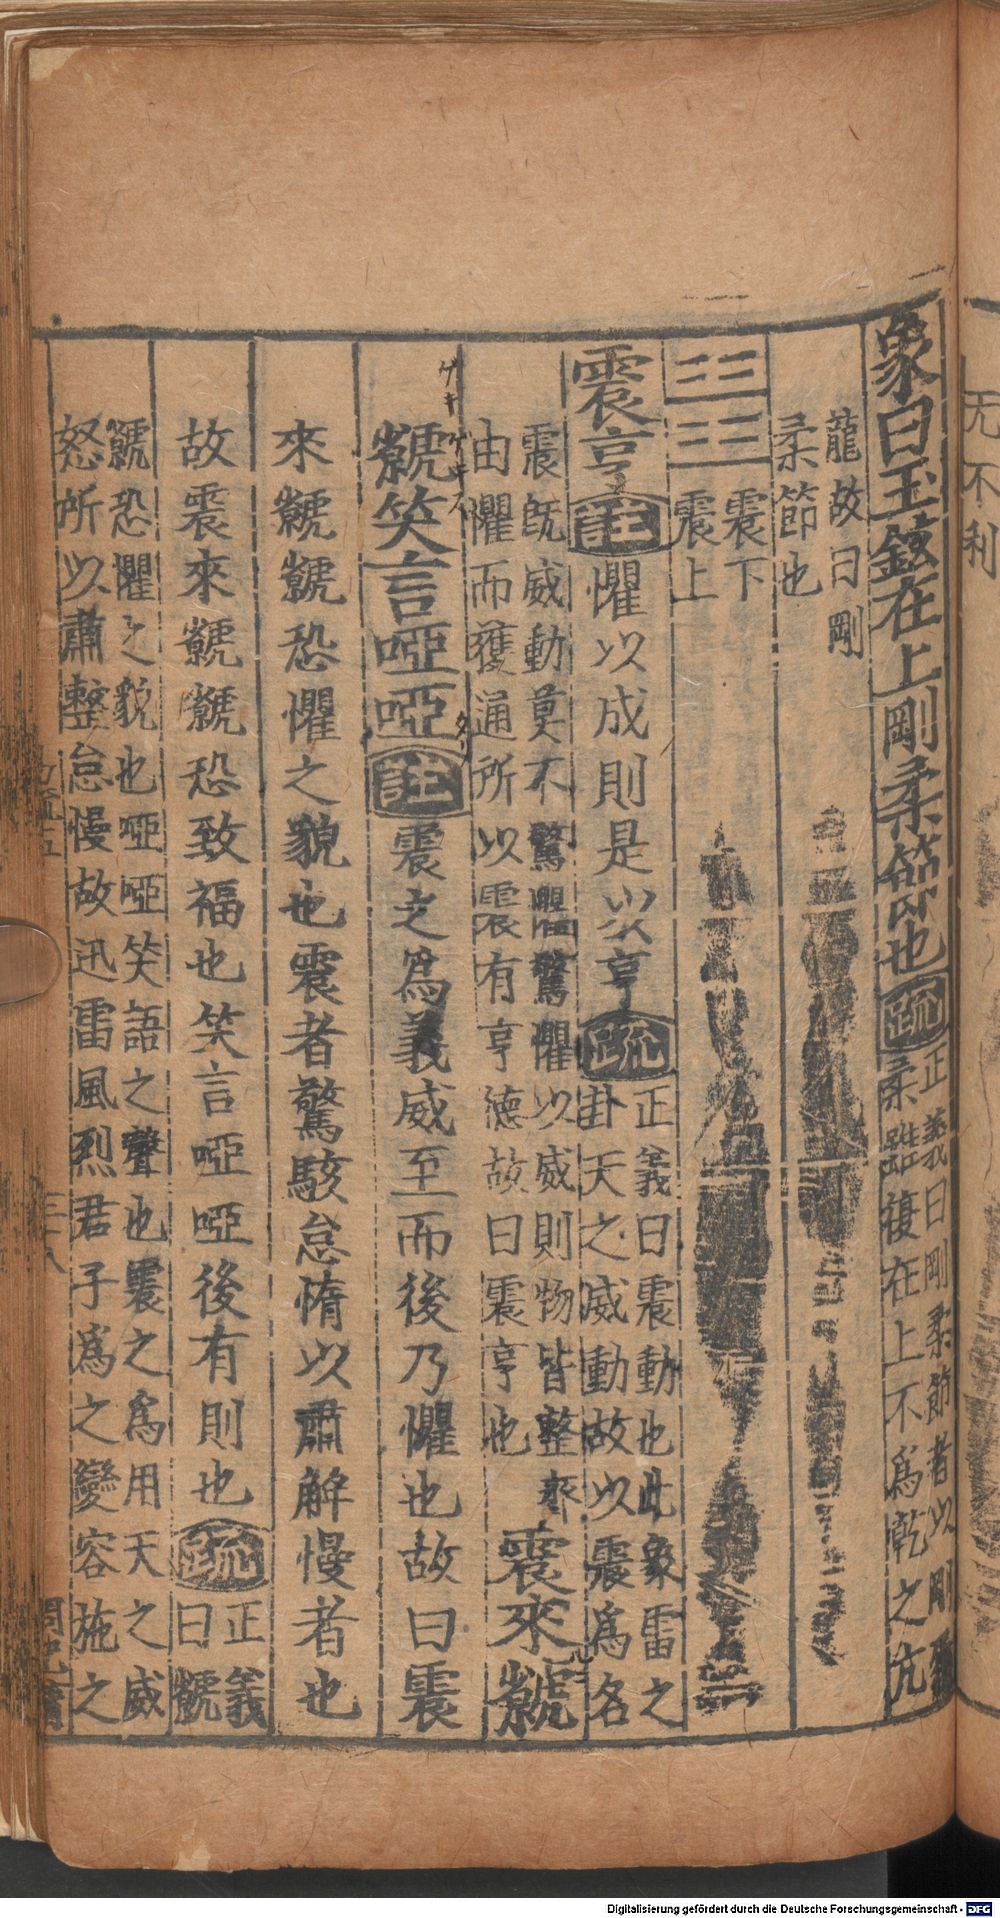 象曰玉鉉在上剛柔節也疏正義曰剛柔節者以剛
柔雖復在上不爲乾之亢
龍故曰剛
柔節也
震下
震上
震亨註懼以成則是以亨疏正義曰震動也此象雷之
卦天之威動故以震爲名
震既威動莫不驚懼驚懼以威則物皆整齊
由懼而獲通所以震有亨德故曰震亨也
震來虩
虩笑言啞啞註震之爲義威至而後乃懼也故曰震
來虩虩恐懼之貌也震者驚駭怠惰以肅解慢者也
故震來虩虩恐致福也笑言啞啞後有則也疏正義
曰虩
虩恐懼之貌也啞啞笑語之聲也震之爲用天之威
怒所以肅整怠慢故迅雷風烈君子爲之變容施之
无不利
Digitalisierung gefördert durch die Deutsche Forschungsgemeinschaft - DFG